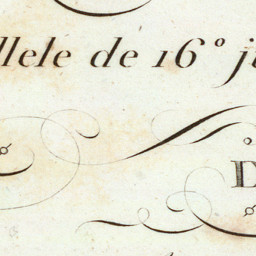 llele de 16° ju
D